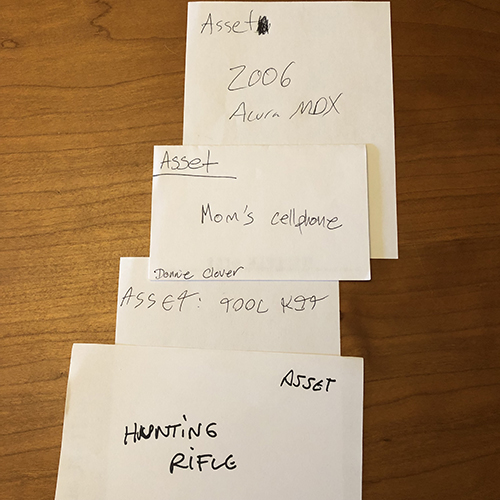 Asset
2006
Acura MDX
Asset
Mom's cellphone
Donnie Clover
ASSET: TOOL KIT
ASSET
HUNTING
RIFLE